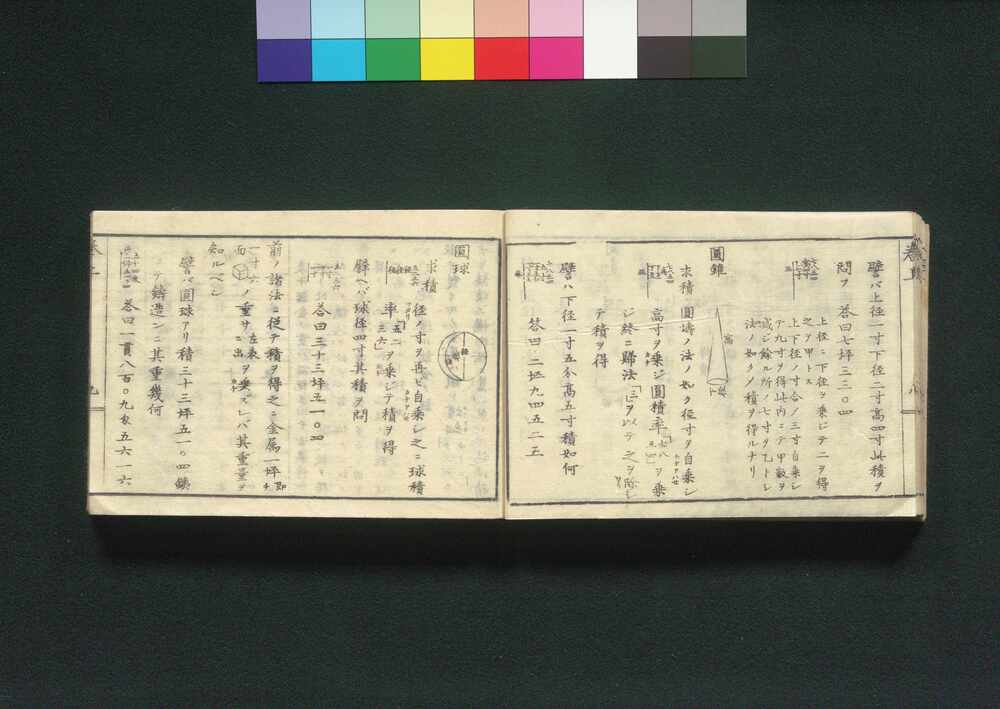 譬バ上径一寸下径二寸高四寸此積ヲ
問フ 荅曰七坪三三〇四
上径ニ下径ヲ乗ジテ二ヲ得
之ヲ甲トス
上下径ノ寸合ノ三寸自乗シ
テ九寸ヲ得此内ニテ甲数ヲ
減シ餘ル所ノ七寸ヲ乙トシ
法ノ如クノ積ヲ得ルナリ
圓錐
高
求積 圓壔ノ法ノ如ク径寸ヲ自乗シ
高寸ヲ乗ジ圓積率 ヲ乗
ジ終ニ歸法「三」ヲ以テ之ヲ除シ
テ積ヲ得
譬ハ下径一寸五分高五寸積如何
荅曰 二坪九四五二五
圓球
求積 径ノ寸ヲ再ビ自乗シ之ニ球積
率 ヲ乗ジテ積ヲ得
譬ヘバ球径四寸其積ヲ問
荅曰三十三坪五一〇四
前ノ諸法ニ従テ積ヲ得之ニ金属一坪
面 ノ重サ 左表ニ出 ヲ乗ズレバ其重量ヲ
知ルベシ
譬バ圓球アリ積三十三坪五一〇四鐵
テ鋳造シニ其重幾何
荅曰一貫八百〇九匁五六一六